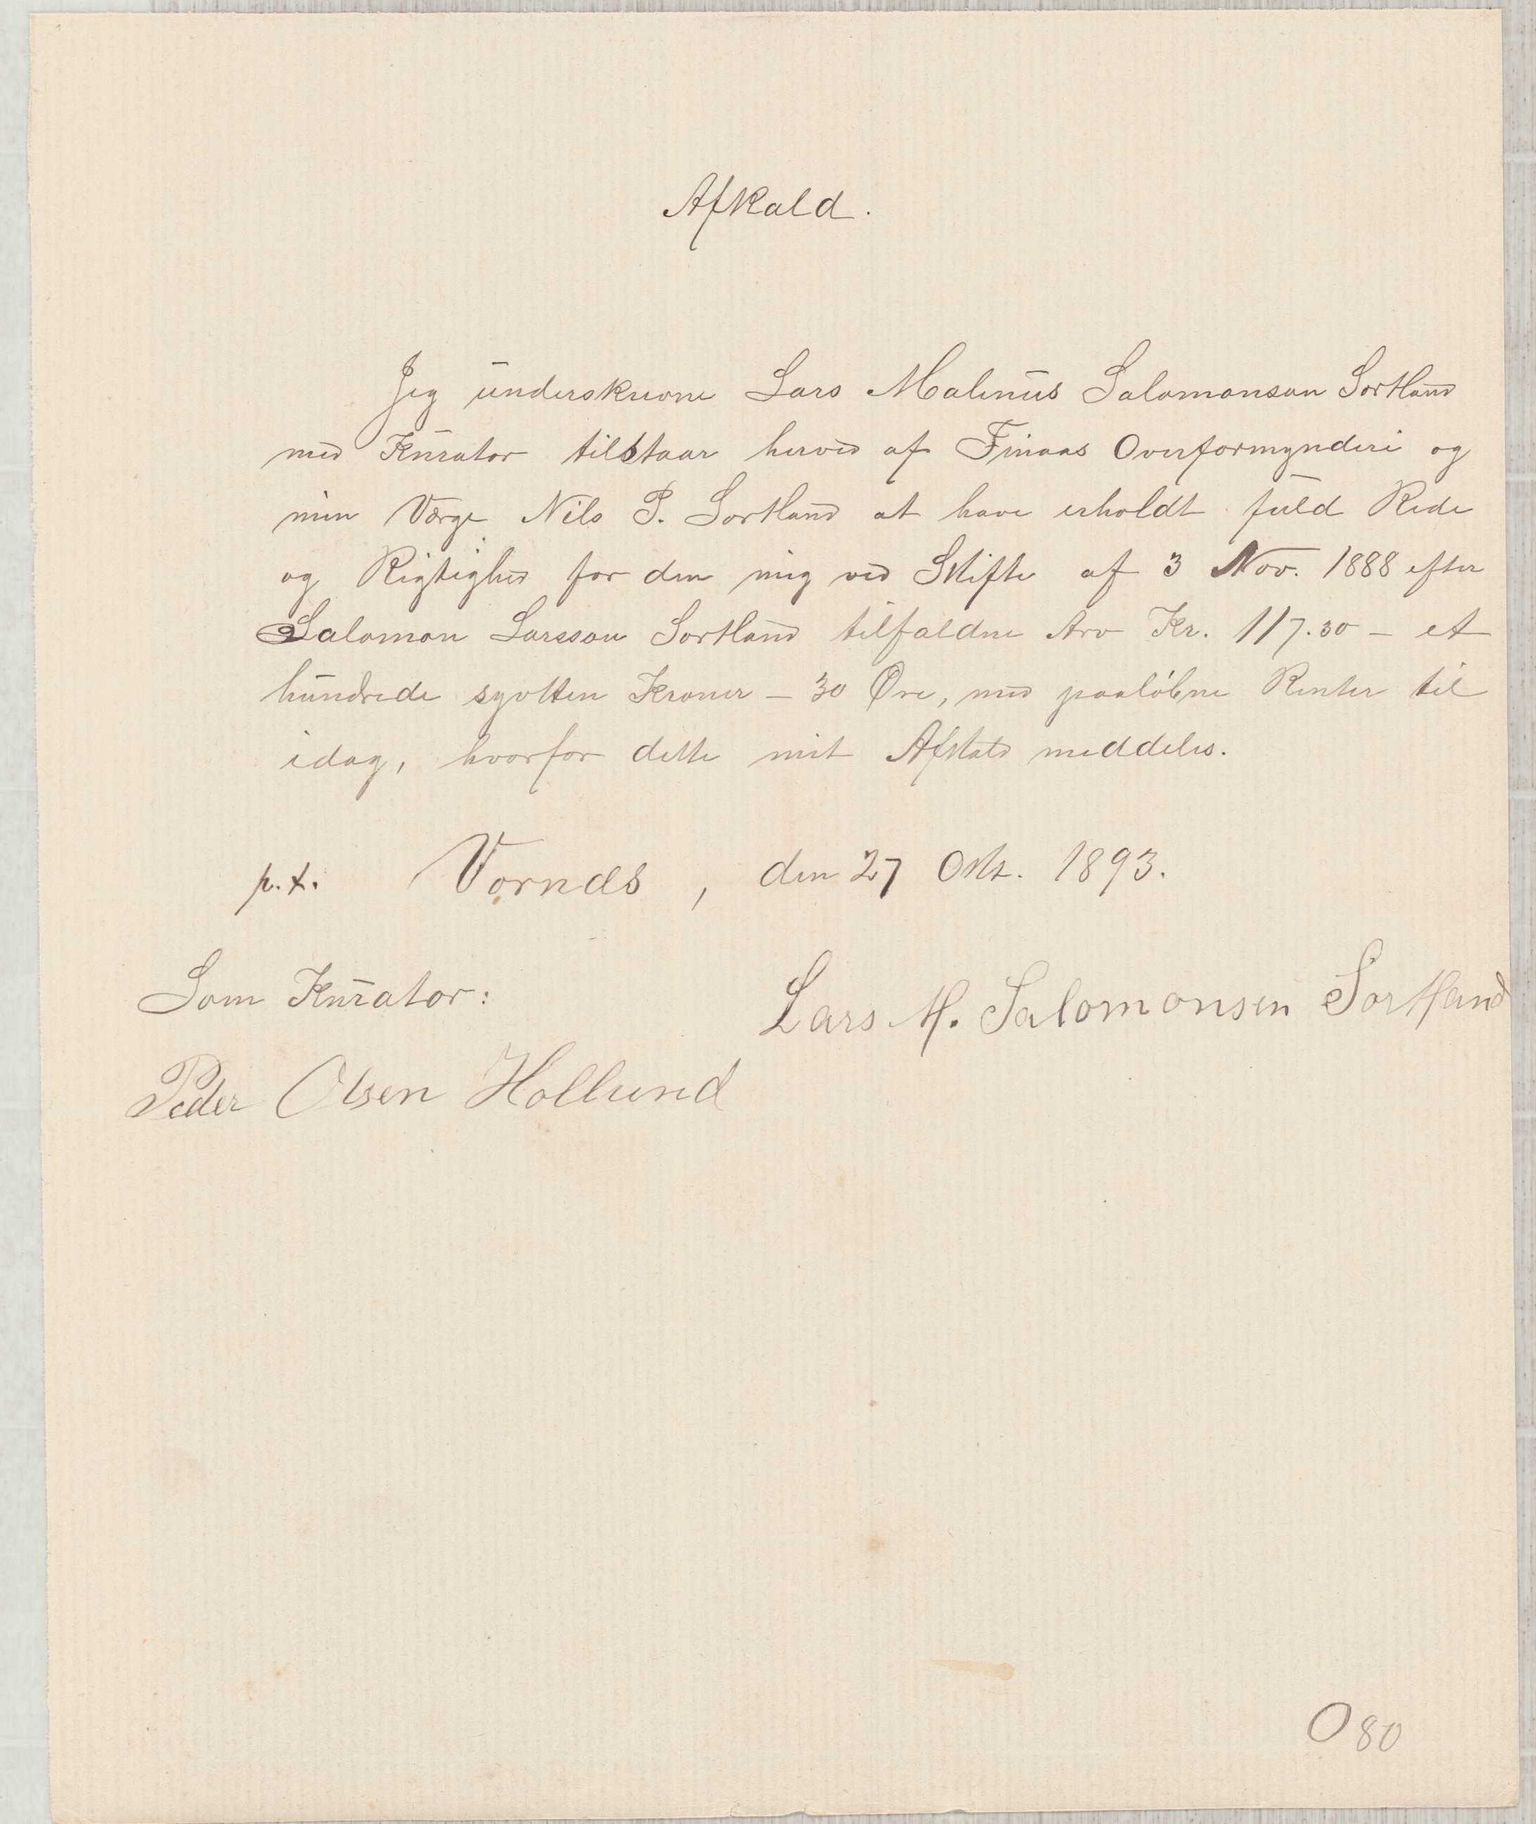 Afkald.
Jeg underskrevne Lars Malinus Salomonsen Sortland
med Kurator tilstaar herved af Finaas Overformynderi og
min Værge Nils P. Sortland at have erholdt fuld Rede
og Rigtighed for den mig ved Skifte af 3 Nov. 1888 efter
Salomon Larsson Sortland tilfaldne Arv Kr. 117.30 – et
hundrede sytten Kroner – 30 Øre, med paaløbne Renter til
idag, hvorfor dette mit Afkald meddeles.
p.t. Vornæs, den 27 Okt. 1893.
Som Kurator: Lars M. Salomonsen Sortland
Peder Olsen Hollund
O 80